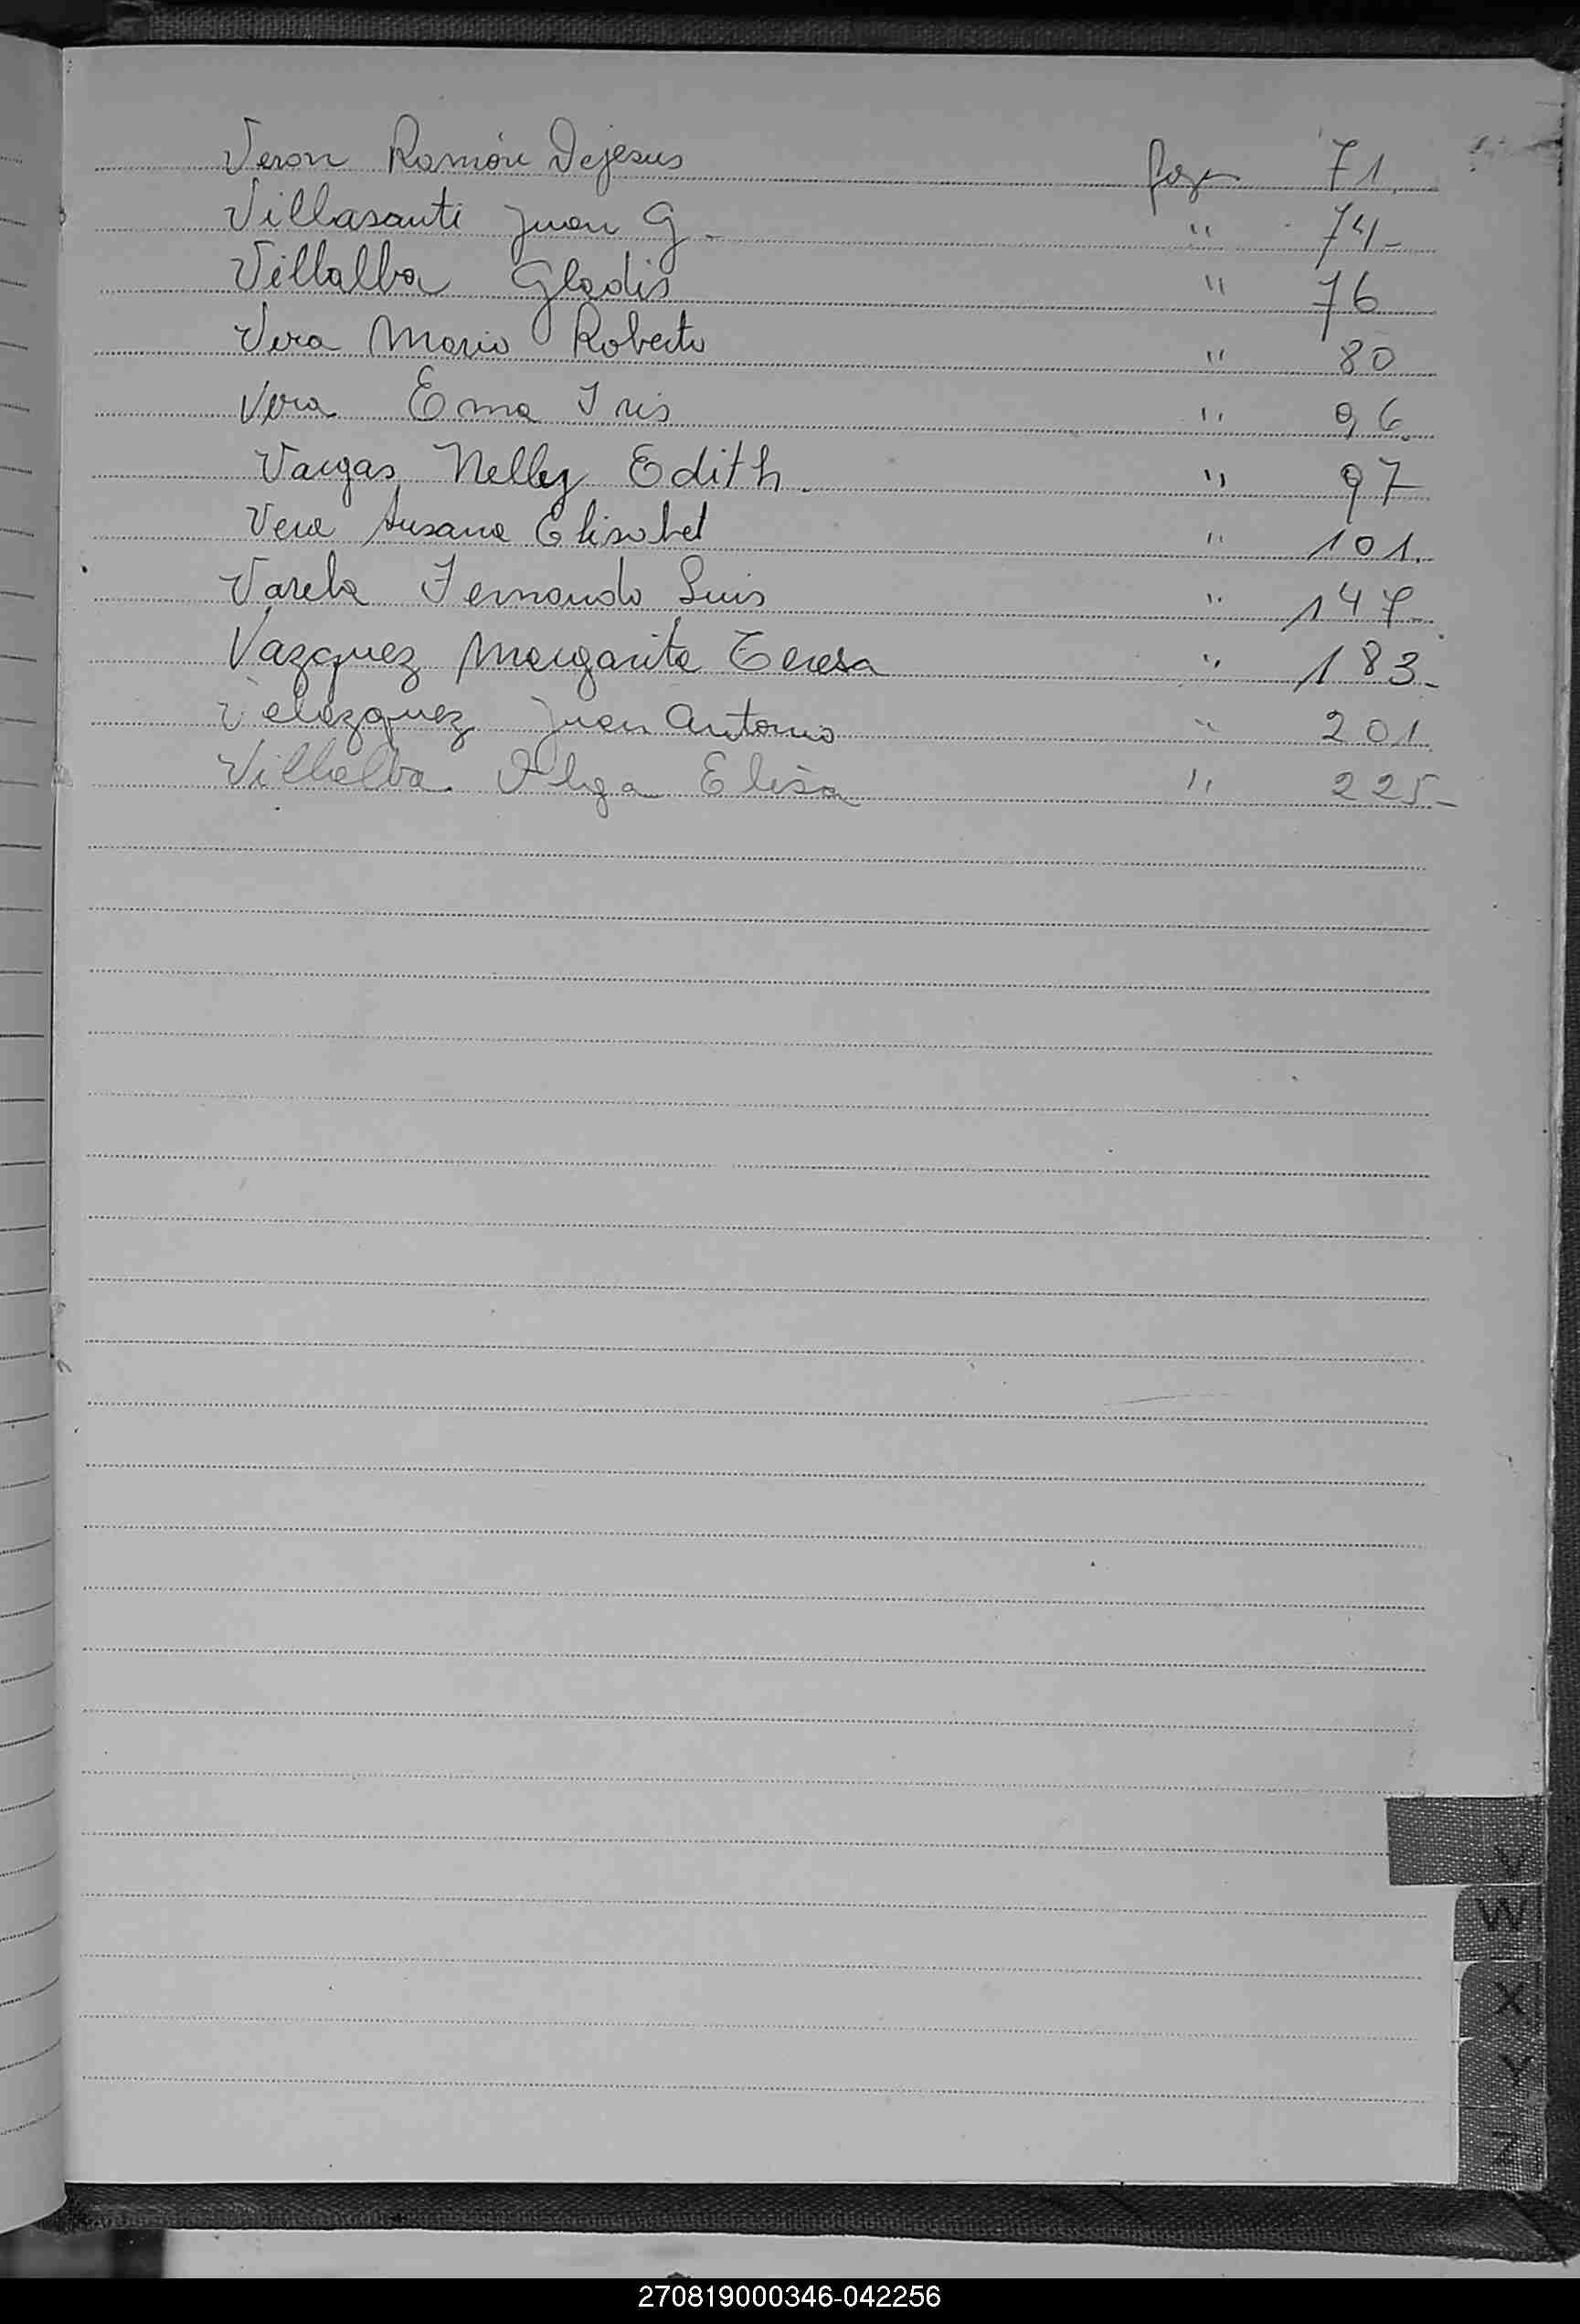 Veron Ramón Dejesus fojas 71.
Villasanti Juan G. " 74-
Villalba Gladis " 76
Vera Mario Roberto " 80
Vera Ema Iris " 96.
Vargas Nelly Edith. " 97
Vera Susana Elisabet " 101.
Varela Fernando Luis " 147-
Vazquez Margarita Teresa " 183-
Velazquez Juan Antonio " 201
Villalba Elisa " 225-
V
W
X
Y
Z
270819000346-042256